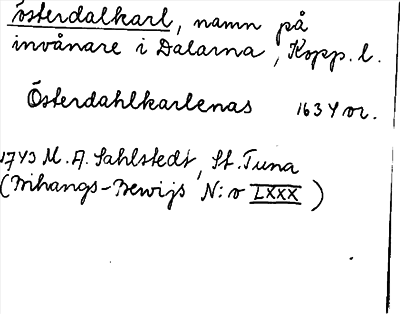 österdalkarl, namn på
invånare i Dalarna, Kopp. l.
Österdahlkarlenas 1634 or.
1743 M. A. Sahlstedt, St. Tuna
(Bihangs-Bewijs N:o LXXX)